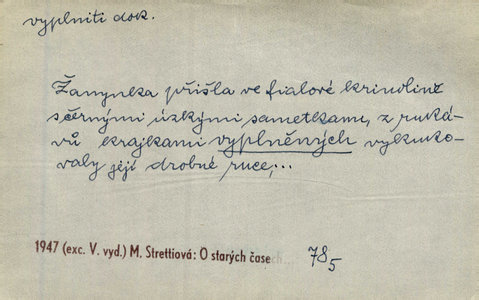 vyplniti dok.
Žanynka přišla ve fialové krinolině
s černými úzkými sametkami, z ruká-
vů krajkami vyplněných vykuko-
valy její drobné ruce,...
1947 (exc. V. vyd.) M. Strettiová: O starých časech 78₅